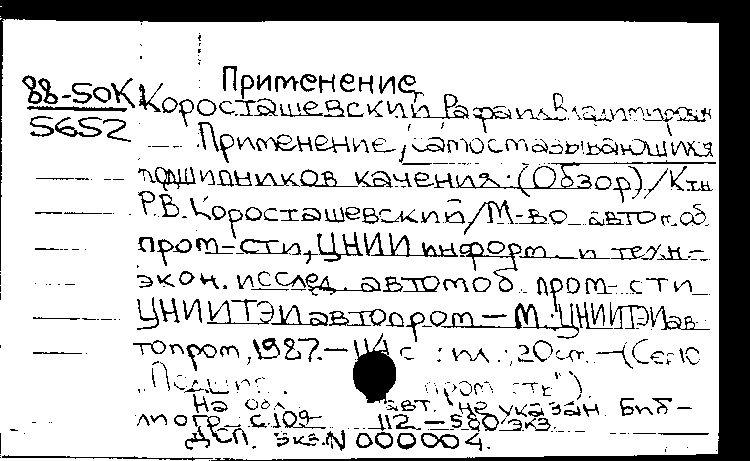 Применение
88-50К Коросташевский Рафаил Владимирович
5652 Применение самосмазывающихся
подшипников качения: (Обзор)/Ктн
Р.В.Коросташевский/М-во автомоб.
пром-сти, ЦНИИ информ. и техн.-
экон. исслед. автомоб. пром-сти
ЦНИИТЭИавтопром - М.:ЦНИИТЭИав-
топром, 1987. - 114 с : ил.; 20см. - (Сер
"Подшип. пром-сть").
На обл. авт. не указан. Биб-
лиогр. с.109-112 - 580 экз
ДСП. экз.N 000004.